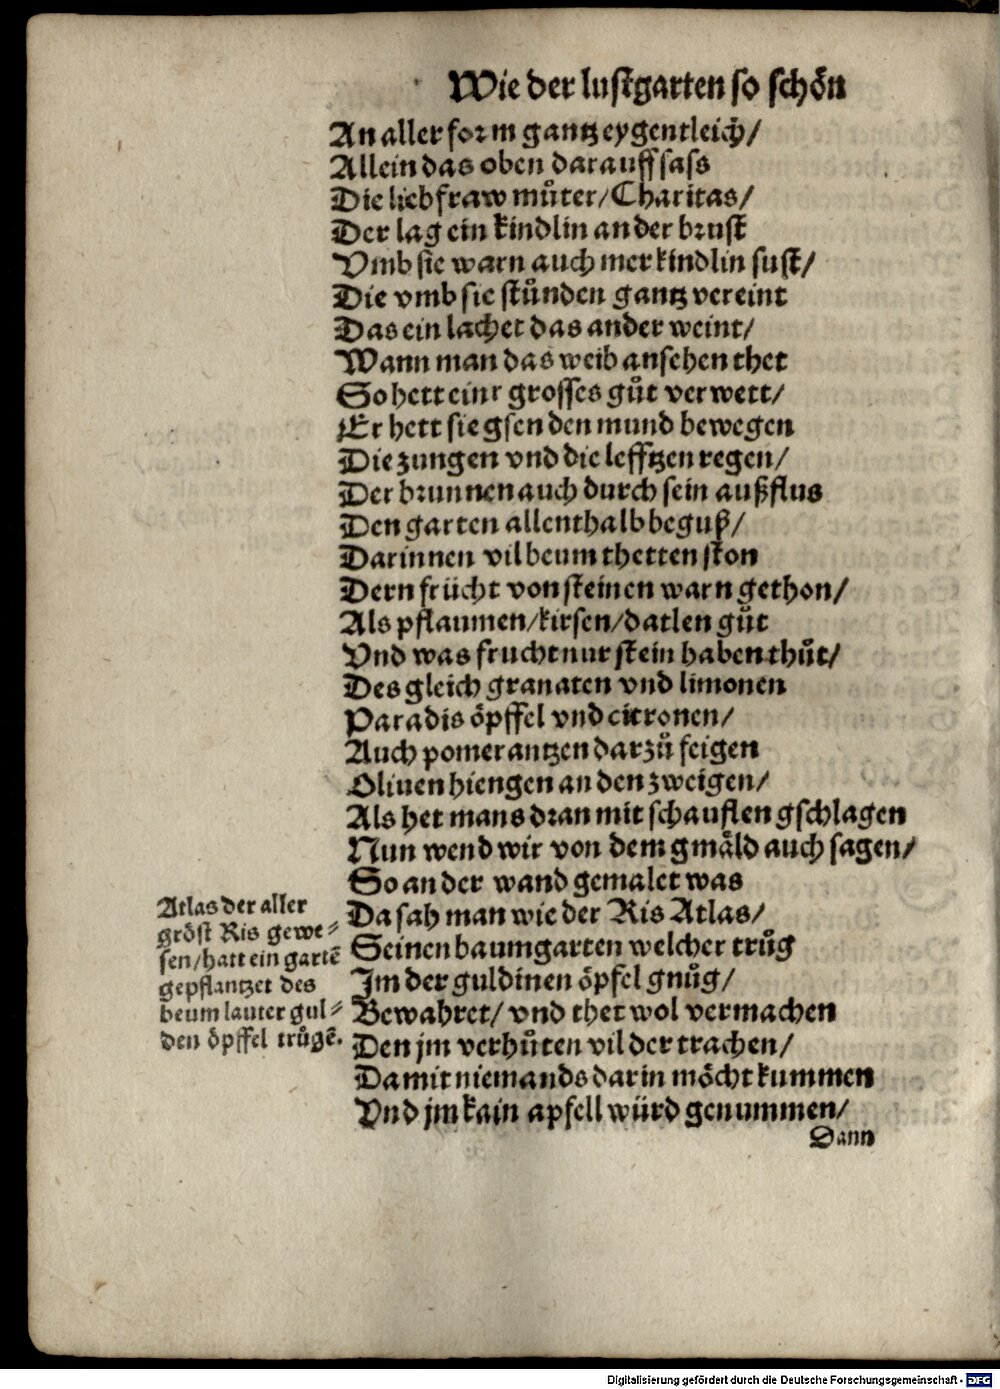 Wie der lustgarten so schön
An aller form gantz eygentleich/
Allein das oben darauff sass
Die lieb fraw můter/Charitas/
Der lag ein kindlin an der brust
Vmb sie warn auch mer kindlin sust/
Die vmb sie stůnden gantz vereint
Das ein lachet das ander weint/
Wann man das weib ansehen thet
So hett einr grosses gůt verwett/
Er hett sie gsen den mund bewegen
Die zungen vnd die lefftzen regen/
Der brunnen auch durch sein außflus
Den garten allenthalb beguß/
Darinnen vil beum thetten ston
Dern frücht von steinen warn gethon/
Als pflaumen/kirsen/datlen gůt
Vnd was frucht nur stein haben thůt/
Des gleich granaten vnd limonen
Paradis öpffel vnd citronen/
Auch pomerantzen darzů feigen
Oliuen hiengen an den zweigen/
Als het mans dran mit schauflen gschlagen
Nun wend wir von dem gmäld auch sagen/
So an der wand gemalet was
Da sah man wie der Ris Atlas/
Seinen baumgarten welcher trůg
Im der guldinen öpfel gnůg/
Bewahret/ vnd thet wol vermachen
Den jm verhůten vil der trachen/
Damit niemands darin möcht kummen
Vnd jm kain apfell würd genummen/
Dann
Atlas der aller
gröst Ris gewe⸗
sen/hatt ein gartē
gepflantzet des
beum lauter gul⸗
den öpffel trůgē.
Digitalisierung gefördert durch die Deutsche Forschungsgemeinschaft - DFG